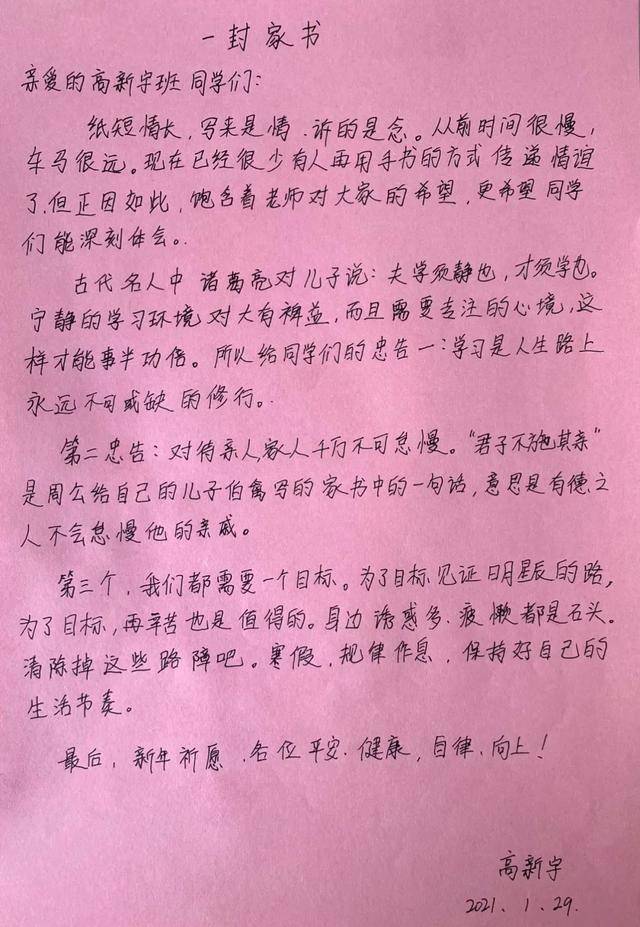 一封家书
亲爱的高新宇班同学们:
纸短情长,写来是情、诉的是念。从前时间很慢,
车马很远。现在已经很少有人再用手书的方式传递情谊
了,但正因如此,饱含着老师对大家的希望,更希望同学
们能深刻体会。
古代名人中诸葛亮对儿子说:夫学须静也,才须学也。
宁静的学习环境对大有裨益,而且需要专注的心境,这
样才能事半功倍。所以给同学们的忠告一:学习是人生路上
永远不可或缺的修行。
第二忠告:对待亲人,家人千万不可怠慢。“君子不施其亲”
是周公给自己的儿子伯禽写的家书中的一句话,意思是有德之
人不会怠慢他的亲戚。
第三个,我们都需要一个目标。为了目标见证日月星辰的路,
为了目标,再辛苦也是值得的。身边诱惑多、疲懒都是石头。
清除掉这些路障吧。寒假,规律作息,保持好自己的
生活节奏。
最后,新年祈愿、各位平安、健康,自律、向上!
高新宇
2021.1.29.